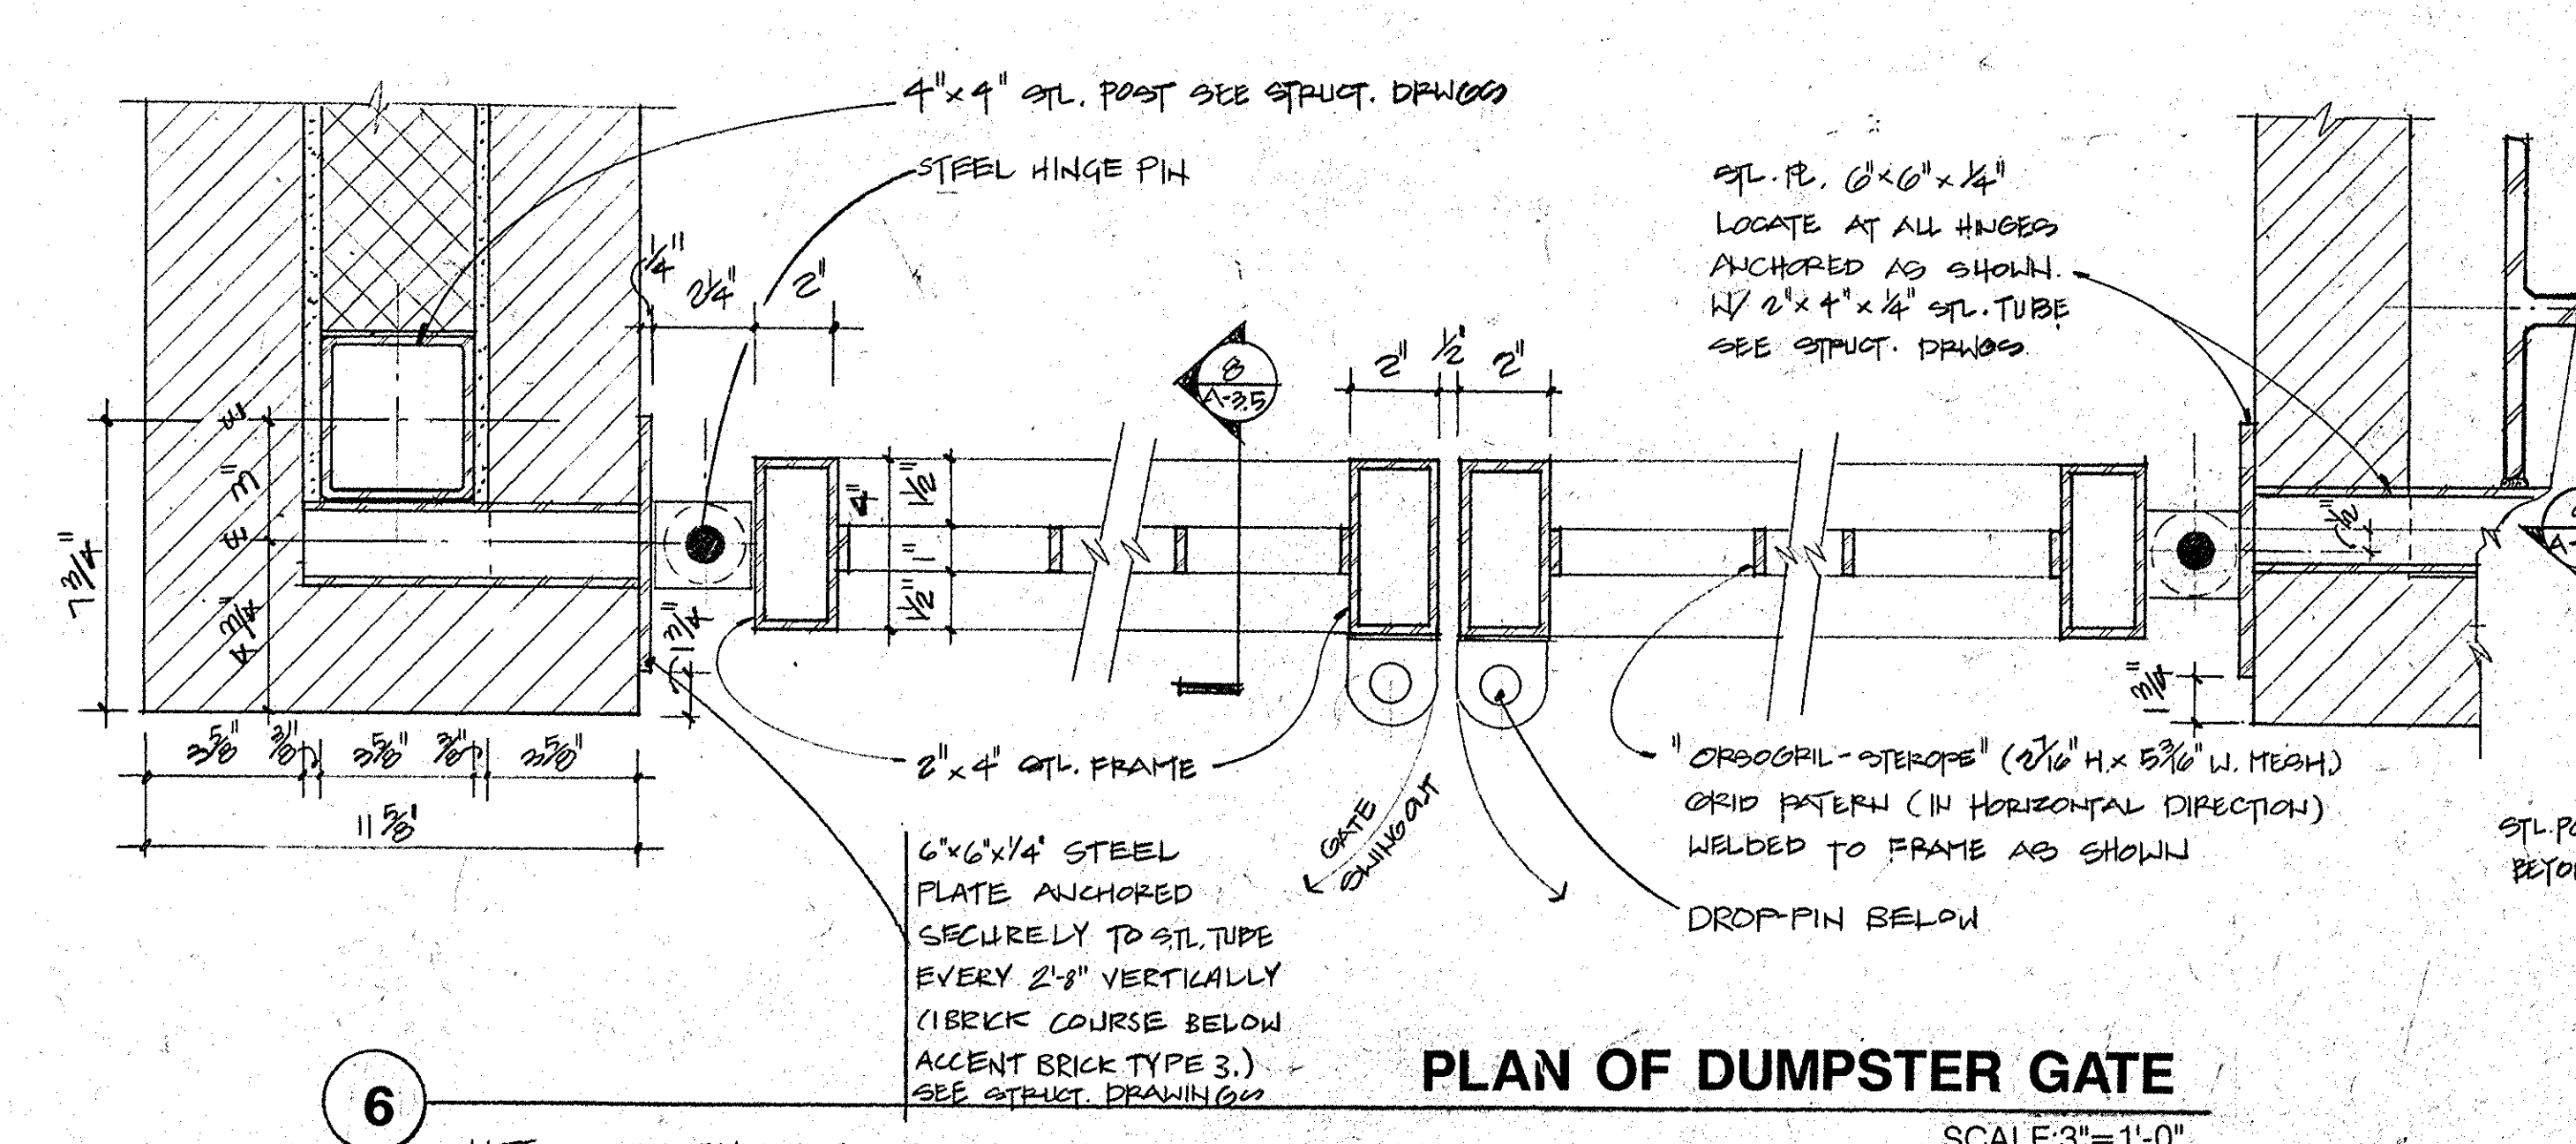 4"x4" STL. POST SEE STRUCT. DRWGS
STEEL HINGE PIN
STL. PL. 6"x6"x1/4"
LOCATE AT ALL HINGES
ANCHORED AS SHOWN.
W/ 2"x4"x1/4" STL. TUBE
SEE STRUCT. DRWGS
1/4"
2 1/4"
2"
8
A-3.5
2"
1/2"
2"
3"
7 3/4"
4"
1 1/2"
1"
1 1/2"
4 3/4"
1 3/4"
1/2"
3 5/8"
3/8"
3 5/8"
3/8"
3 5/8"
11 5/8"
2"x4" STL. FRAME
GATE
SWING OUT
"ORSOGRIL-STEROPE" (2 7/16" H. x 5 3/16" W. MESH.)
GRID PATERN (IN HORIZONTAL DIRECTION)
WELDED TO FRAME AS SHOWN
DROP-PIN BELOW
6"x6"x1/4" STEEL
PLATE ANCHORED
SECURELY TO STL. TUBE
EVERY 2'-8" VERTICALLY
(1 BRICK COURSE BELOW
ACCENT BRICK TYPE 3.)
SEE STRUCT. DRAWINGS
6
PLAN OF DUMPSTER GATE
SCALE: 3"=1'-0"